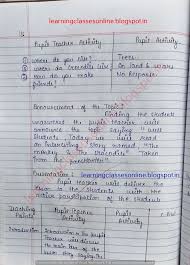 learningclassesonline.blogspot.in
Pupil Teacher Activity
Pupil Activity
① Where do you live?
Trees
② Where do Crocodile live?
On land & water
③ How do you make friends?
No Response.
Announcement of the Topic:
Finding the students
unanswered the pupil teacher will
announce the topic saying "well
Students Today we will read
an Interesting story named "The
monkey & the crocodile" Taken
from the panchtantra".
learningclassesonline.blogspot.in
Presentation:
Pupil teacher will deliver the
lesson to the Students with the
active participation of the students
Teaching Points
Pupil Teacher Activity
Pupil Activity
Introduction
Introduction the pupil
Teacher will discuss
the main idea of the
learningclassesonline.blogspot.in